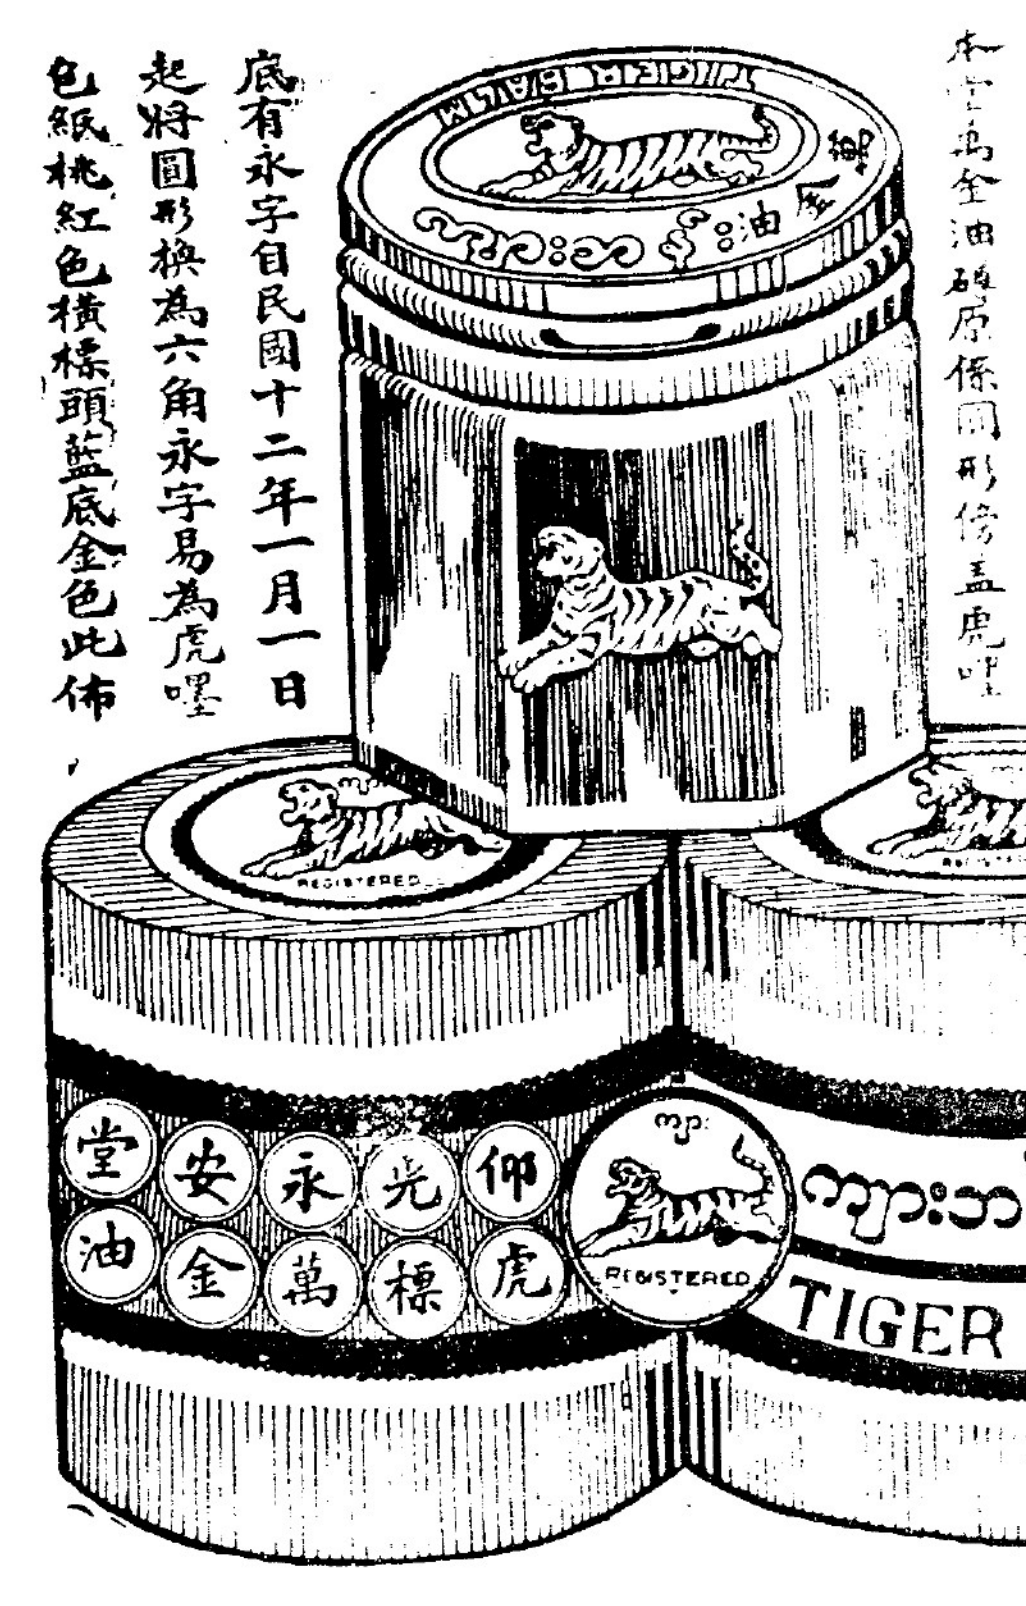 本堂萬金油磁原係圓形傍蓋虎嘜
底有永字自民國十二年一月一日
起將圓形換為六角永字易為虎嘜
色紙桃紅色橫標頭藍底金色此佈
TIGER BALM
萬金油
REGISTERED
REGISTERED
仰光永安堂
虎標萬金油
ကျား
REGISTERED
ကျား
TIGER